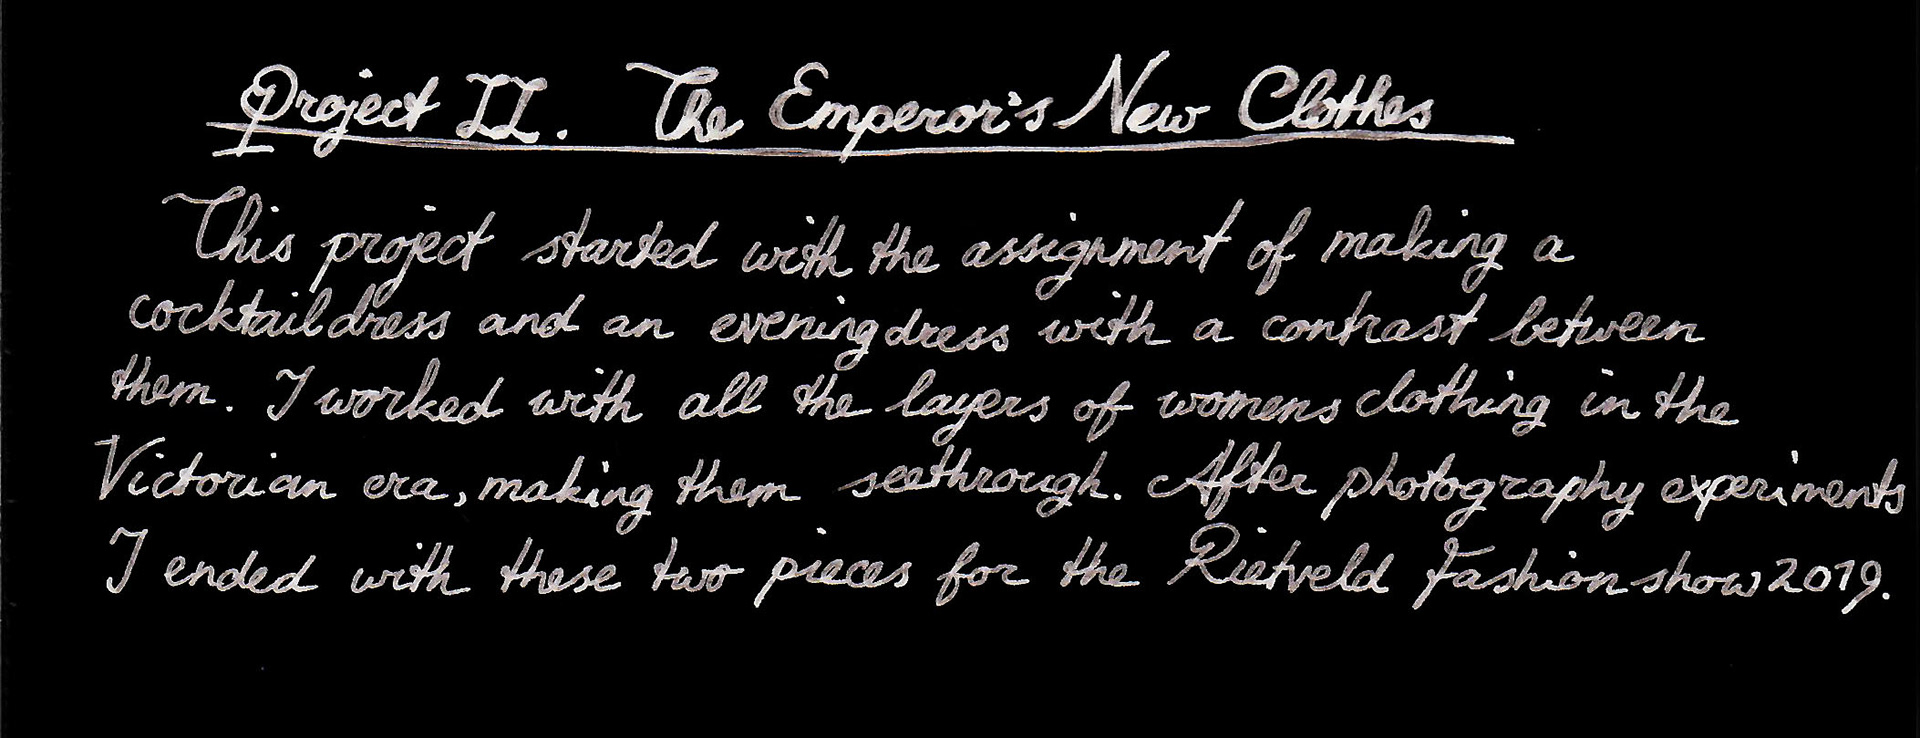 Project II. The Emperor's New Clothes
This project started with the assignment of making a
cocktaildress and an eveningdress with a contrast between
them. I worked with all the layers of womens clothing in the
Victorian era, making them seethrough. After photography experiments
I ended with these two pieces for the Rietveld Fashionshow 2019.